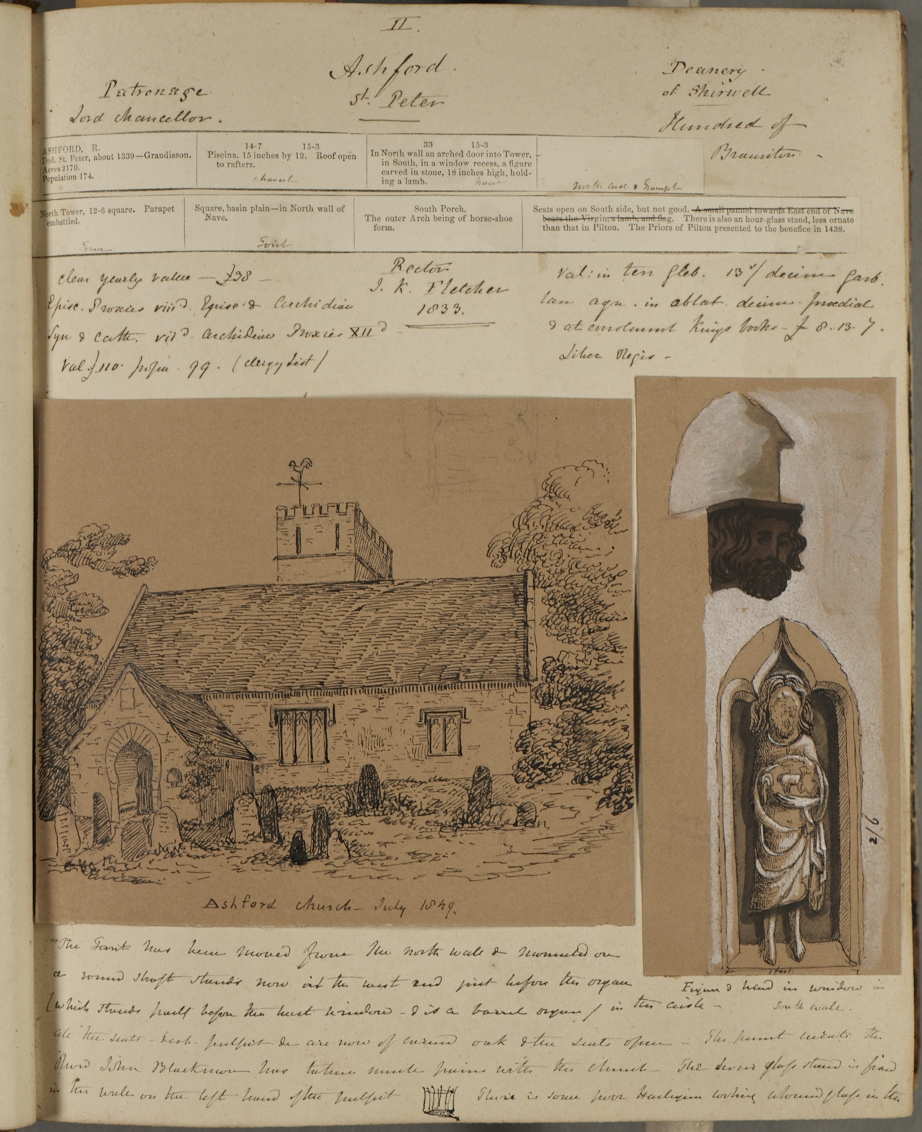 II.
Ashford.
St. Peter
Patronage
Lord Chancellor.
Deanery
of Shirwell
Hundred of
Braunton
ASHFORD, R.
Ded. St. Peter, about 1339—Grandisson.
Acres 2170.
Population 174.
14-7 15-3
Piscina. 15 inches by 12. Roof open
to rafters.
Chancel
33 15-3
In North wall an arched door into Tower,
in South, in a window recess, a figure
carved in stone, 18 inches high, hold-
ing a lamb.
Nave
North Aisle & Transept
North Tower, 12-6 square. Parapet
embattled.
Tower
Square, basin plain—in North wall of
Nave.
Font
South Porch.
The outer Arch being of horse-shoe
form.
Seats open on South side, but not good. A small pannel towards East end of Nave
bears the Virgin, a lamb, and flag. There is also an hour-glass stand, less ornate
than that in Pilton. The Priors of Pilton presented to the benefice in 1438.
clear yearly value — £38 —
Episc. Proxies viiid. Episc & Archidiac
Syn & cath. viid. Archidiac Proxies XIId
Val. £110. popn. 99. (Clergy List)
Rector
J. K. Fletcher
1833.
Val: in ter gleb. 13s/ decim garb.
lan agn. in oblat. decim. predial
& at emolument Kings books — £8. 13. 7.
Liber Regis —
Ashford Church — July 1849.
2/6
1 foot
Figure & head in window in
South wall.
The Font has been moved from the north wall & mounted on
a round shaft stands now at the west end just before the organ
(which stands partly before the west window - & is a barrel organ) in this aisle —
all the seats - desk. pulpit &c are now of carved oak & the seats open — The present curate the
Revd John Blackmore has taken much pains with this church — The hour glass stand is fixed
in the wall on the left hand of the pulpit There is some poor Harlequin looking coloured glass in the